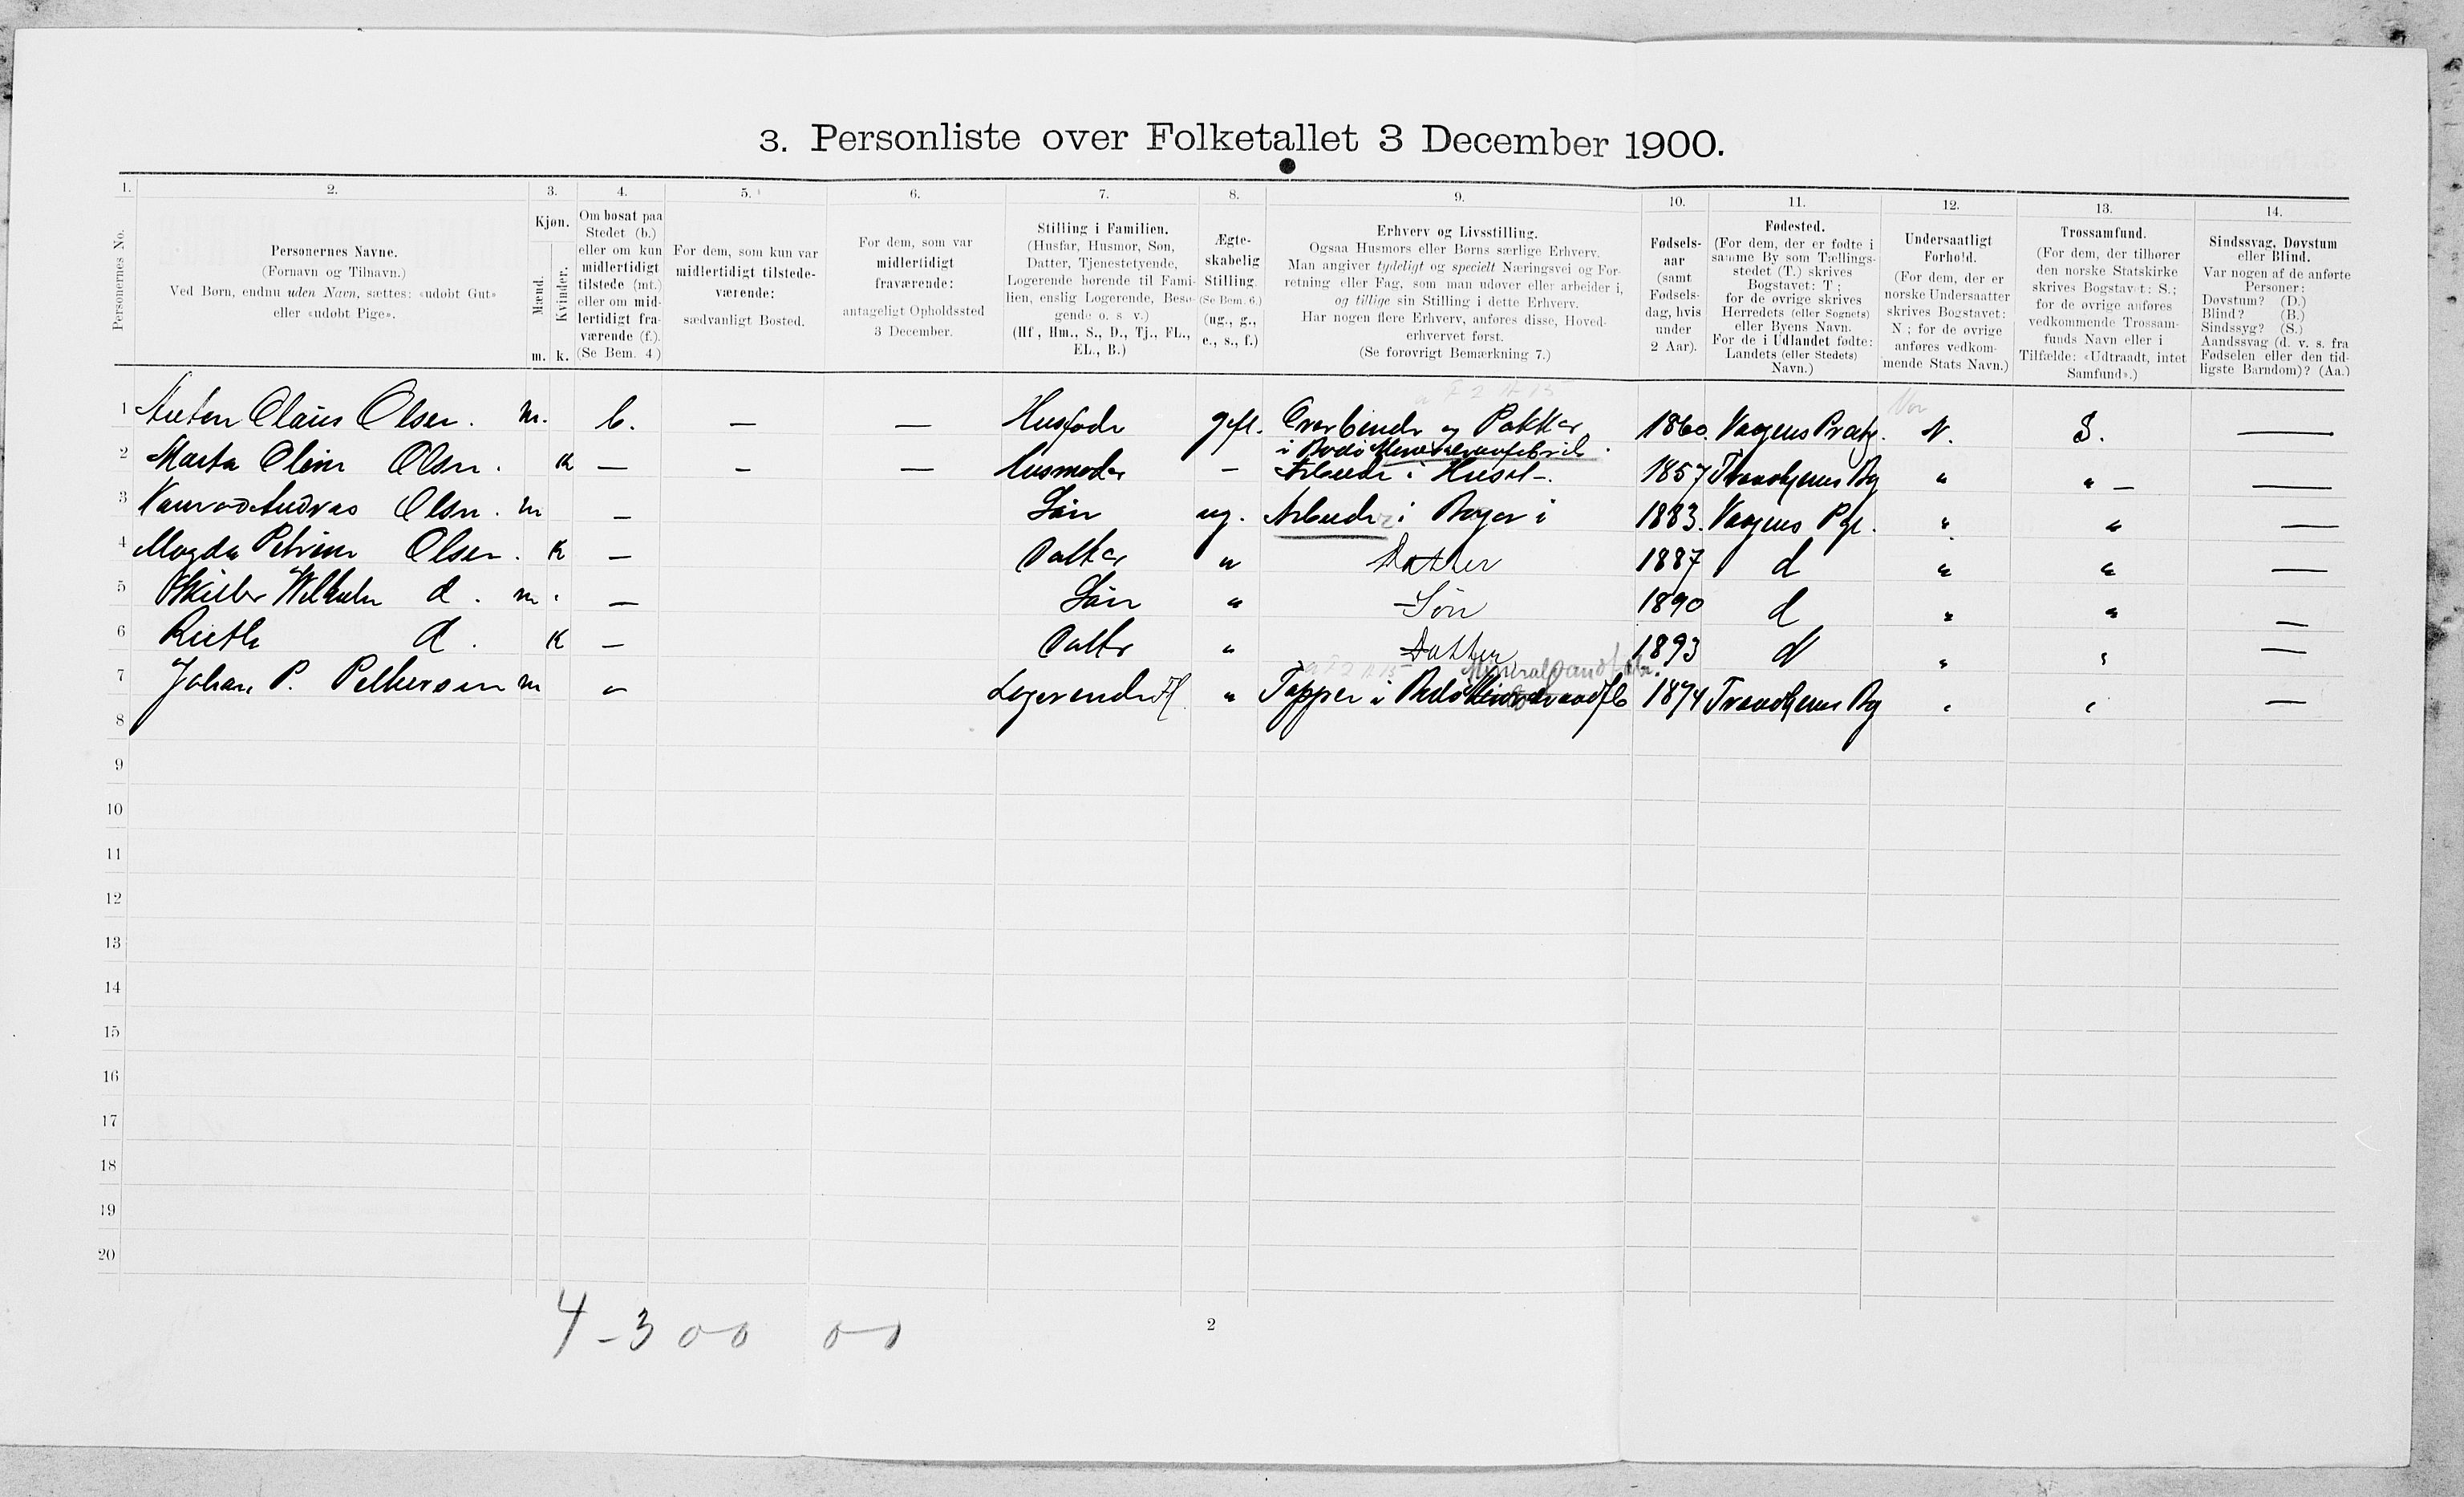 3. Personliste over Folketallet 3 December 1900.
1. 2. 3. 4. 5. 6. 7. 8. 9. 10. 11. 12. 13. 14.
Personernes No.
Personernes Navne.
(Fornavn og Tilnavn.)
Ved Børn, endnu uden Navn, sættes: «udøbt Gut»
eller «udøbt Pige».
Kjøn.
Mænd.
Kvinder.
m. k.
Om bosat paa
Stedet (b.)
eller om kun
midlertidigt
tilstede (mt.)
eller om mid-
lertidigt fra-
værende (f.).
(Se Bem. 4.)
For dem, som kun var
midlertidigt tilstede-
værende:
sædvanligt Bosted.
For dem, som var
midlertidigt
fraværende:
antageligt Opholdssted
3 December.
Stilling i Familien.
(Husfar, Husmor, Søn,
Datter, Tjenestetyende,
Logerende hørende til Fami-
lien, enslig Logerende, Besø-
gende o. s. v.)
(Hf., Hm., S., D., Tj., FL.,
EL., B.)
Ægte-
skabelig
Stilling.
(Se Bem. 6.)
(ug., g.,
e., s., f.)
Erhverv og Livsstilling.
Ogsaa Husmors eller Børns særlige Erhverv.
Man angiver tydeligt og specielt Næringsvei og For-
retning eller Fag, som man udøver eller arbeider i,
og tillige sin Stilling i dette Erhverv.
Har nogen flere Erhverv, anføres disse, Hoved-
erhvervet først.
(Se forøvrigt Bemærkning 7.)
Fødsels-
aar
(samt
Fødsels-
dag, hvis
under
2 Aar).
Fødested.
(For dem, der er fødte i
samme By som Tællings-
stedet (T.) skrives
Bogstavet: T ;
for de øvrige skrives
Herredets (eller Sognets)
eller Byens Navn.
For de i Udlandet fødte:
Landets (eller Stedets)
Navn.)
Undersaatligt
Forhold.
(For dem, der er
norske Undersaatter
skrives Bogstavet:
N ; for de øvrige
anføres vedkom-
mende Stats Navn.)
Trossamfund.
(For dem, der tilhører
den norske Statskirke
skrives Bogstavet: S.;
for de øvrige anføres
vedkommende Trossam-
funds Navn eller i
Tilfælde: «Udtraadt, intet
Samfund».)
Sindssvag, Døvstum
eller Blind.
Var nogen af de anførte
Personer:
Døvstum? (D.)
Blind? (B.)
Sindssyg? (S.)
Aandssvag (d. v. s. fra
Fødselen eller den tid-
ligste Barndom)? (Aa.)
1 Claus Olsen. m. b. — — Husfader gift. og Pakker 1860. N. S. —
i Bodö
2 Marta Olsen. k — — — Husmoder — i Huset -. 1857 Trondhjems By " " — —
3 Olsen. m — Sön ug. Arbeider i 1883. Vaagens Pgl. " " —
4 Magda Petrine Olsen. k — Datter " Datter 1887 d " " —
5 d. m. — Sön " Søn 1890 d " " —
6 Ruth d. k — Datter " Datter 1893 d " " —
7 Johan P. Pettersen m " Logerende fl " Tapper i Bodö 1874 Trondhjems By " " —
8
9
10
11
12
13
14
15
16
17
18
19
20
4 - 3 00 00
2